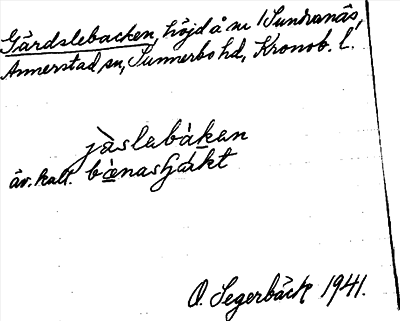 Gårdslebacken, höjd å nr 1 Sundranäs,
Annerstad sn, Sunnerbo hd, Kronob. l.
jàslebàken
äv. kall. bœ̀nasҧàkt
O. Segerbäck 1941.